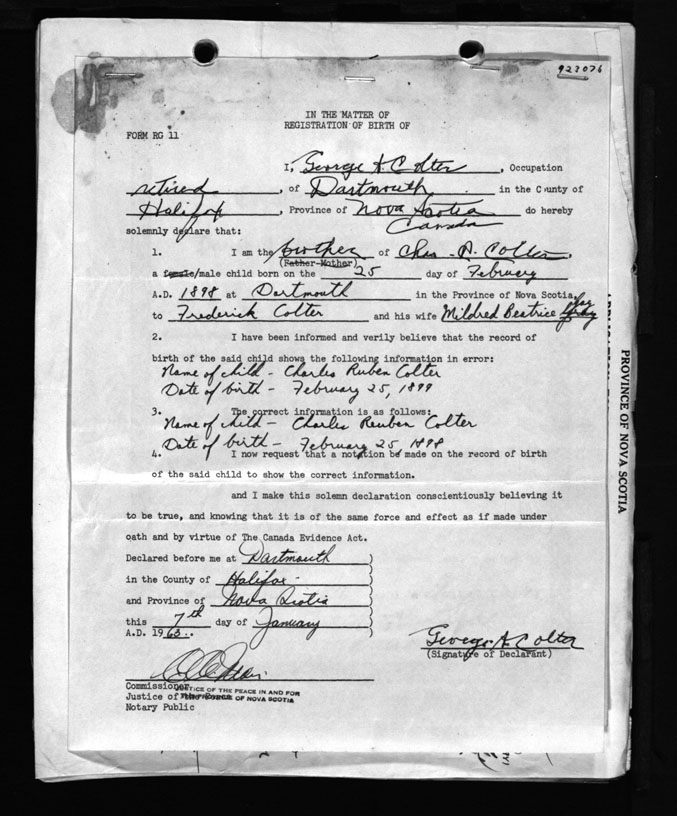 923076
IN THE MATTER OF
REGISTRATION OF BIRTH OF
FORM RG 11
I, George A. Colter, Occupation
retired, of Dartmouth in the County of
Halifax, Province of Nova Scotia do hereby
Canada
solemnly declare that:
1. I am the brother of Chas. A. Colter,
(Father-Mother)
a female/male child born on the 25 day of February
A.D. 1898 at Dartmouth in the Province of Nova Scotia
to Frederick Colter and his wife Mildred Beatrice
2. I have been informed and verily believe that the record of
birth of the said child shows the following information in error:
Name of child - Charles Ruben Colter
Date of birth - February 25, 1899
3. The correct information is as follows:
Name of child - Charles Reuben Colter
Date of birth - February 25, 1898
4. I now request that a notation be made on the record of birth
of the said child to show the correct information.
and I make this solemn declaration conscientiously believing it
to be true, and knowing that it is of the same force and effect as if made under
oath and by virtue of The Canada Evidence Act.
Declared before me at Dartmouth
in the County of Halifax
and Province of Nova Scotia
this 7th day of January
A.D. 1963.
George A. Colter
(Signature of Declarant)
Commissioner
JUSTICE OF THE PEACE IN AND FOR
Justice of the Peace
THE PROVINCE OF NOVA SCOTIA
Notary Public
PROVINCE OF NOVA SCOTIA